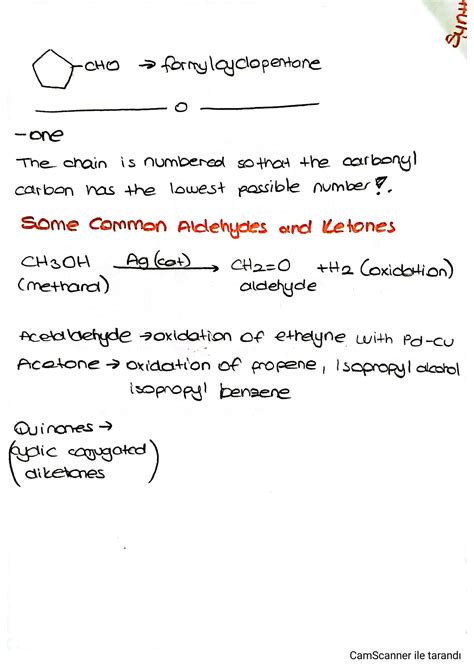 Synth
-CHO → formylcyclopentane
O
-one
The chain is numbered so that the carbonyl
carbon has the lowest possible number!.
Some Common Aldehydes and Ketones
CH3OH Ag(cat) → CH2=O +H2 (oxidation)
(methanol) aldehyde
Acetaldehyde → oxidation of ethelyne with Pd-Cu
Acetone → oxidation of propene, isopropyl alcohol
isopropyl benzene
Quinones →
(cyclic conjugated
diketones)
CamScanner ile tarandı